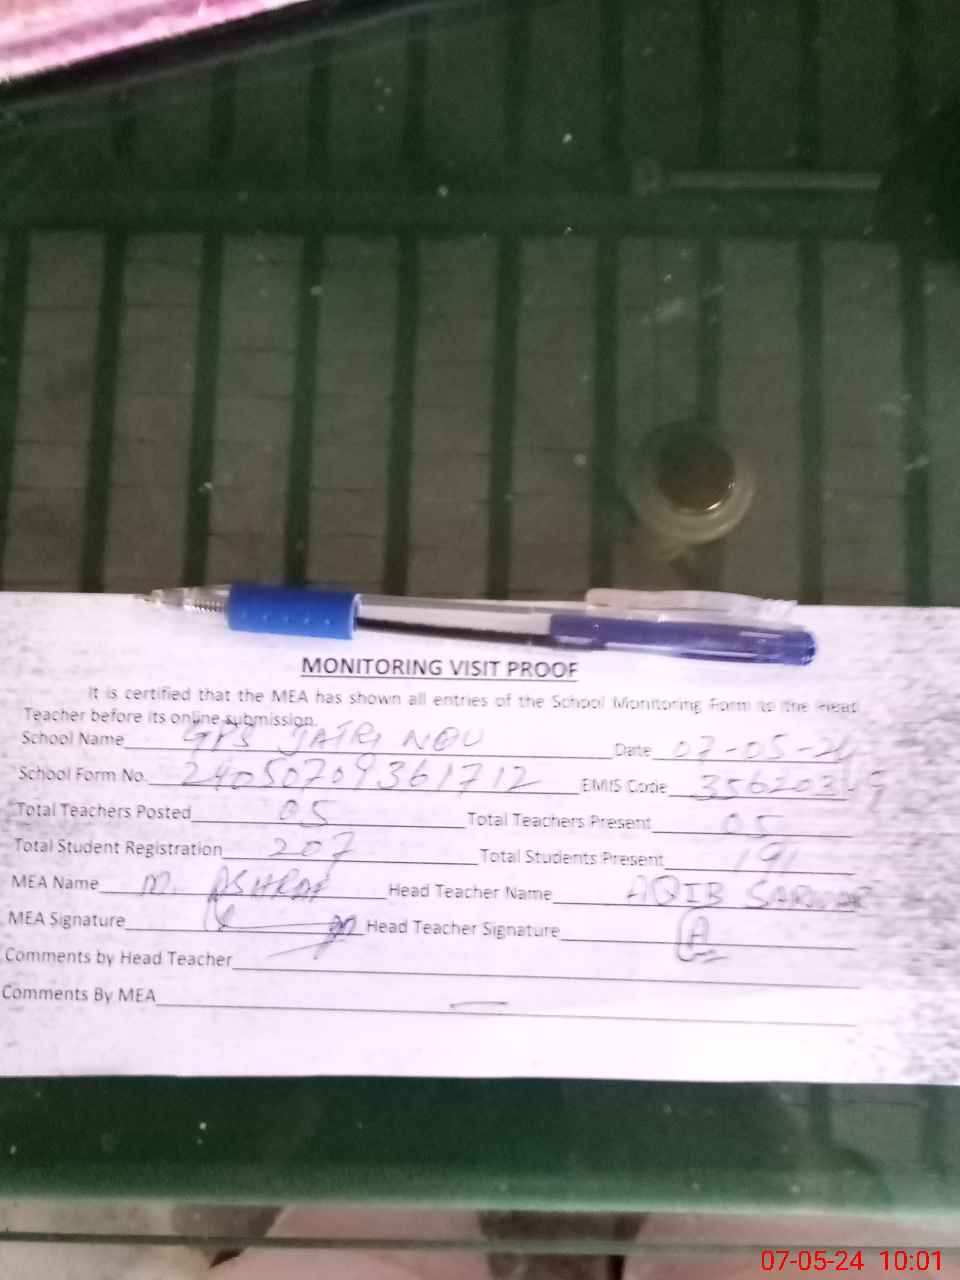 MONITORING VISIT PROOF
It is certified that the MEA has shown all entries of the School Monitoring Form to the Head
Teacher before its online submission.
School Name GPS JATRI NOU Date 07-05-24
School Form No. 24050709361712 EMIS Code
Total Teachers Posted 05 Total Teachers Present 05
Total Student Registration 207 Total Students Present 191
MEA Name M. ASHRAF Head Teacher Name AQIB SARWAR
MEA Signature Head Teacher Signature
Comments by Head Teacher
Comments By MEA
07-05-24 10:01